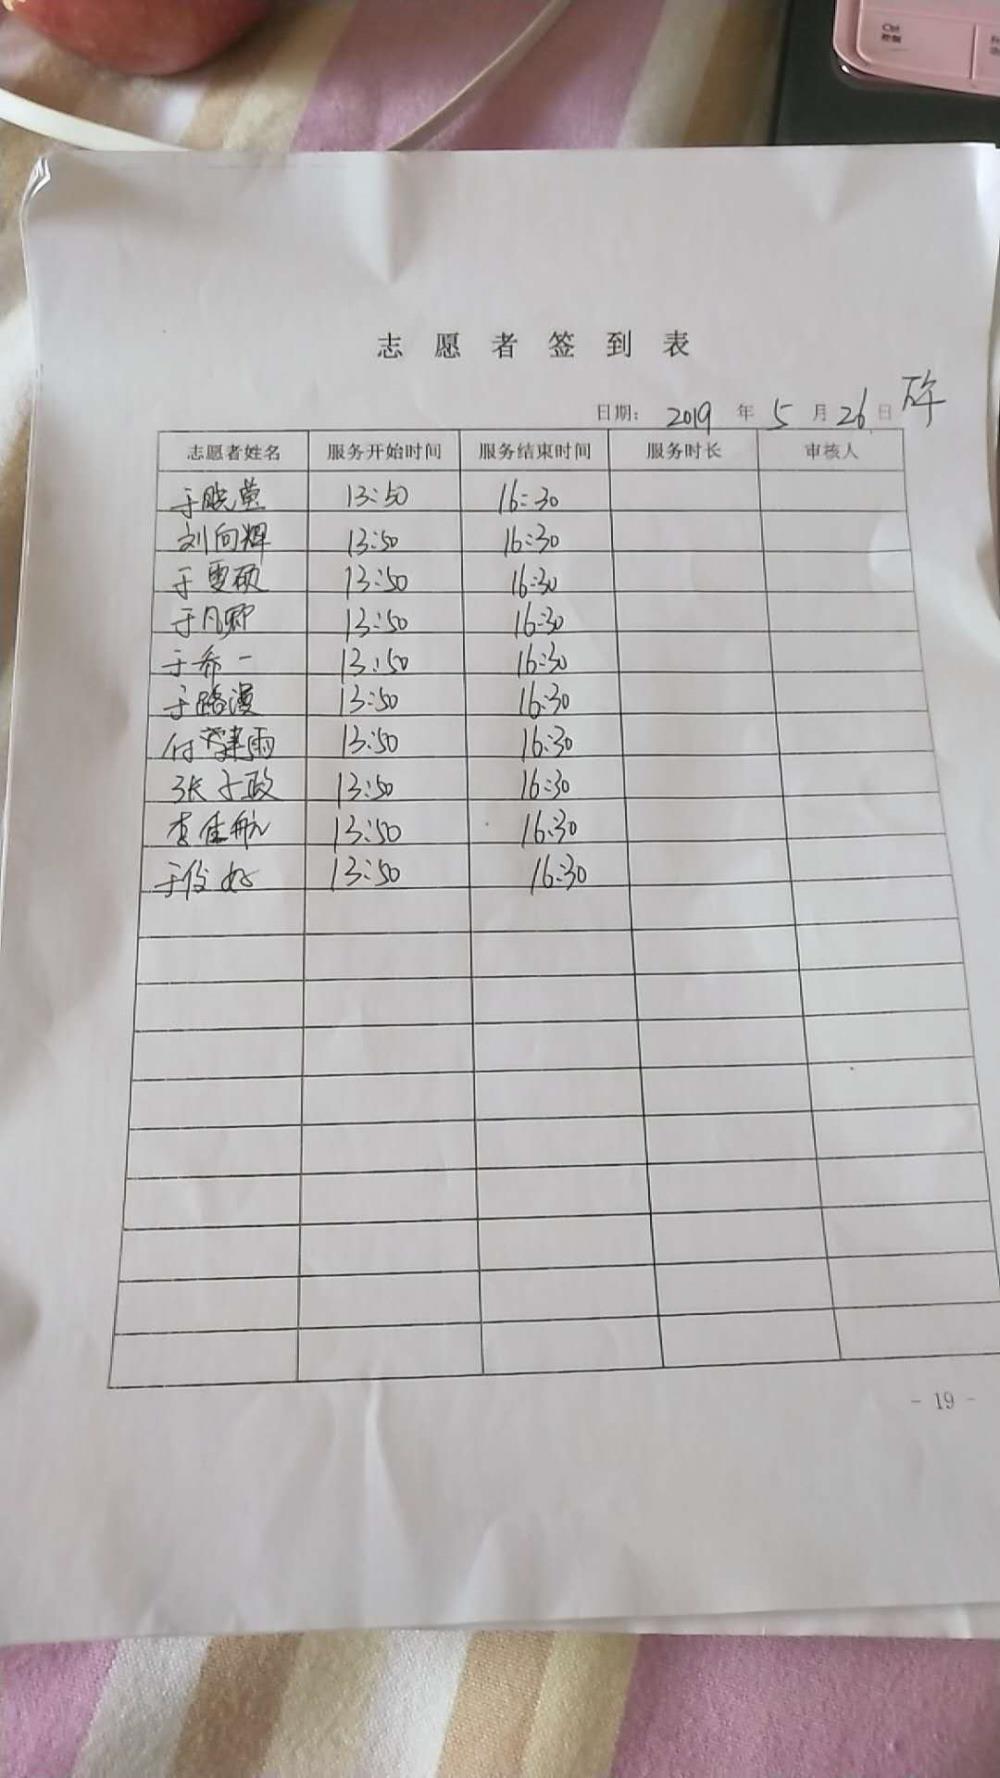 Ctrl
控制
志愿者签到表
日期: 2019 年 5 月 26 日 下午
志愿者姓名 服务开始时间 服务结束时间 服务时长 审核人
于晓莹 13:50 16:30
刘向辉 13:50 16:30
于雯硕 13:50 16:30
于凡 13:50 16:30
于希一 13:50 16:30
于路漫 13:50 16:30
付 雨 13:50 16:30
张子政 13:50 16:30
李佳航 13:50 16:30
于俊好 13:50 16:30
- 19 -